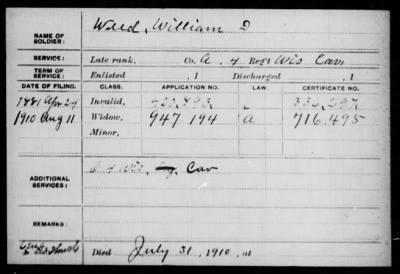 NAME OF SOLDIER: Weed, William D
SERVICE: Late rank, Co. A, 4 Reg't Wis Cav
TERM OF SERVICE: Enlisted , 1 Discharged , 1
DATE OF FILING. CLASS. APPLICATION NO. LAW. CERTIFICATE NO.
1881 Apr 29 Invalid,
1910 Aug 11 Widow, 947 194 a 716.495
Minor,
ADDITIONAL SERVICES: Cav
REMARKS:
Died July 31, 1910, at